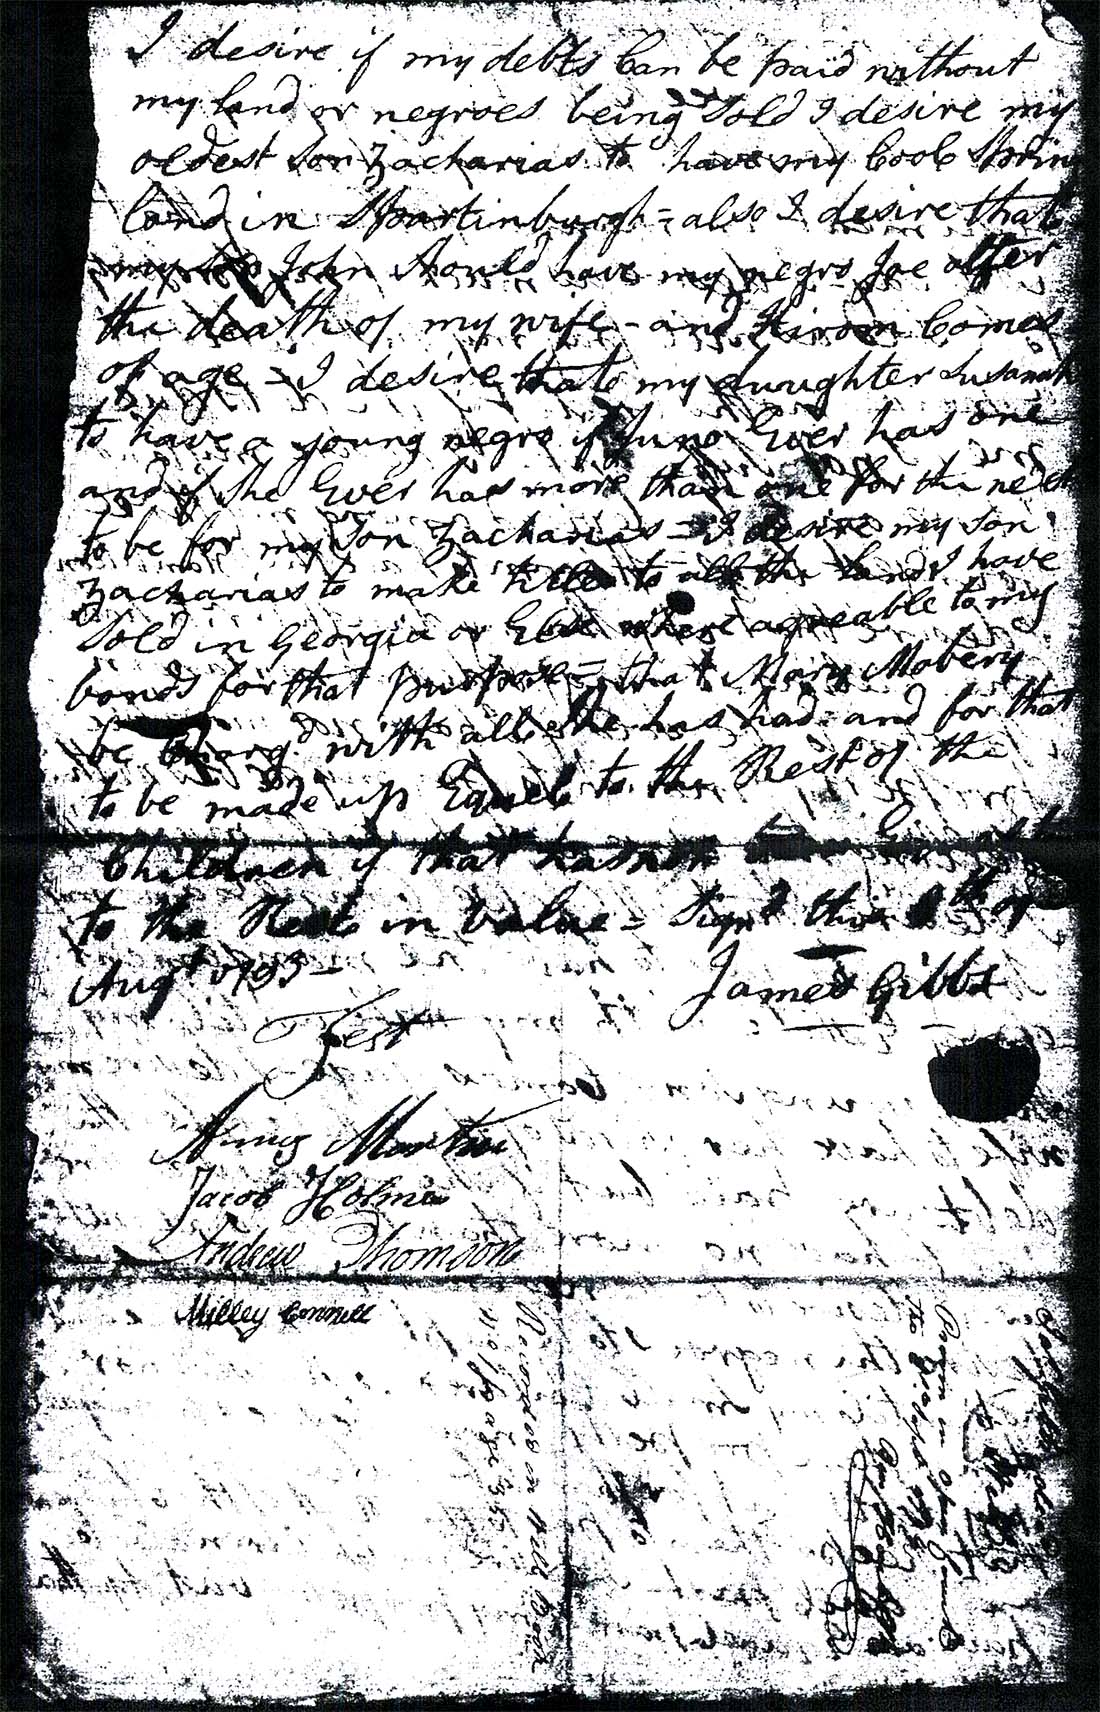 I desire if my debts Can be paid without
my land or negroes being Sold I desire my
oldest Son Zacharias to have my Cool Sprin
land in Spartinburgh = also I desire that
my son John Should have my negro Joe after
the death of my wife - and Hirom Comes
of age - I desire that my daughter Susanah
to have a young negro if Juno Ever has one
and if She Ever has more than one for the next
to be for my Son Zacharias = I desire my Son
Zacharias to make titles to all the lands I have
Sold in Georgia or Else where agreable to my
bonds for that purpose = that Mary Mobery
be Charg.d with all She has had and for that
to be made up Equel to the Rest of the
Children if that has not
to the Rest in Value = Sign.d this th of
Aug.t 1793 -
James Gibbs
Test
Jacob Holmes
Andrew Thomson
Milley Connell
Recorded in Will Book